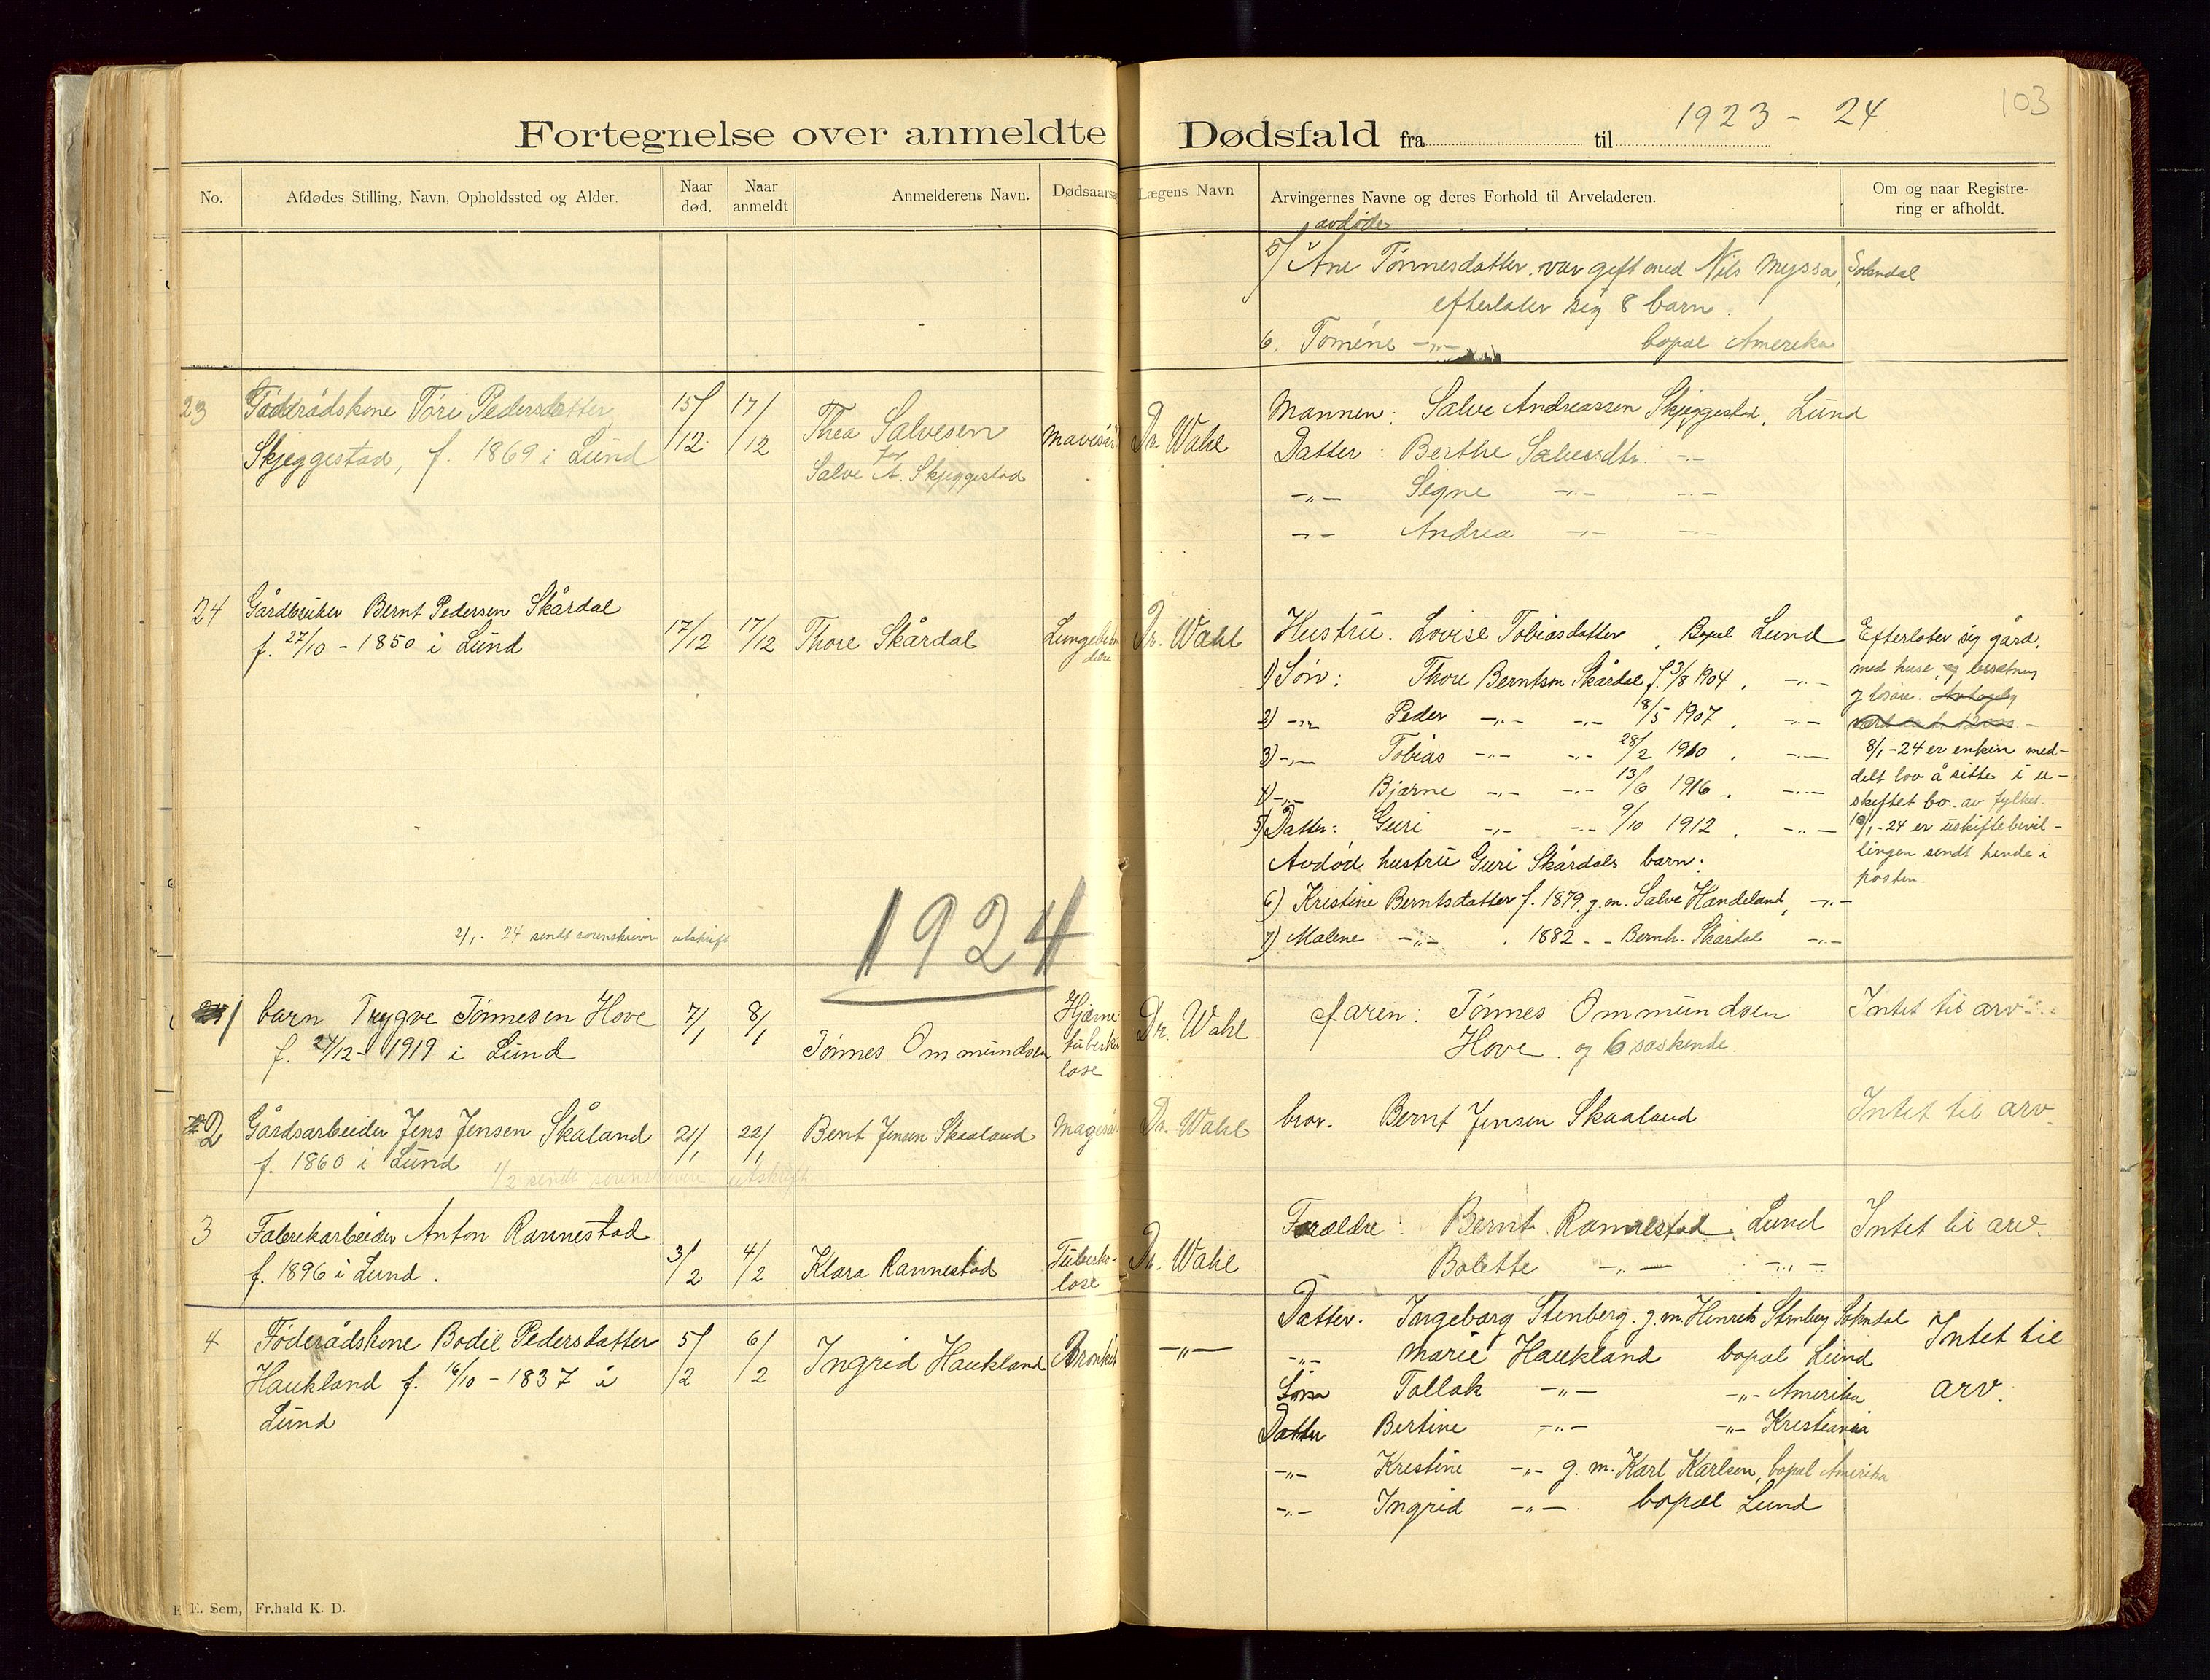 103
1923 - 24
Fortegnelse over anmeldte Dødsfald fra til
No. Afdødes Stilling, Navn, Opholdssted og Alder. Naar død. Naar anmeldt Anmelderens Navn. Dødsaarsa Lægens Navn Arvingernes Navne og deres Forhold til Arveladeren. Om og naar Registrering er afholdt.
avdøde
5/ Ane Tønnesdatter. var gift med Nils Myssa, Sokndal
efterlater sig 8 barn.
6. Tomine -„- bopal Amerika
23 Föderådskone Tori Pedersdatter
Skjeggestad, f. 1869 i Lund
15/12 17/12
Thea Salvesen
for
Salve A. Skjeggestad
Dr. Wahl
Mannen: Salve Andreassen Skjeggestad, Lund
Datter: Berthe Salvesdtr. -„-
-„- Signe -„- -„-
-„- Andrea -„- -„-
24 Gårdbruker Bernt Pedersen Skårdal
f. 27/10 - 1850 i Lund
17/12 17/12 Thore Skårdal
Dr. Wahl
Hustru. Lovise Tobiasdatter, Bopal Lund
1) Søn: Thore Berntsen Skårdal f. 3/8 1904, -„-
2) -„- Peder -„- -„- 18/5 1907, -„-
3) -„- Tobias -„- -„- 28/2 1910, -„-
4) -„- Bjarne -„- -„- 13/6 1916, -„-
5) Datter: Guri -„- -„- 9/10 1912, -„-
Avdød hustru Guri Skårdals barn:
6) Kristine Berntsdatter f. 1879. g.m. Salve Handeland, -„-
7) Malene -„- 1882 - Bernh. Skårdal -„-
Efterlater sig gård,
med huse, og besætning
g løsøre.
8/1-24 er enken med-
delt lov å sitte i u-
skiftet bo. av fylket.
10/1-24 er uskiftebevil-
lingen sendt hende i
posten.
2/1 - 24 sendt sorenskriver utskrift
1924
1 barn Trygve Tønnesen Hove
f. 27/12 - 1919 i Lund
7/1 8/1
Tønnes Ommundsen
Hjerne
tuberku
lose
Dr. Wahl
Faren: Tönnes Ommundsen
Hove. og 6 søskende.
Intet til arv
2 Gårdsarbeider Jens Jensen Skåland
f. 1860 i Lund
21/1 22/1 Bent Jensen Skaaland
Dr. Wahl
bror. Bernt Jensen Skaaland
Intet til arv.
1/2 sendt sorenskriveren utskrift
3 Fabrikarbeider Anton Rannestad
f. 1896 i Lund.
3/2 4/2 Klara Rannestad
Tuberku-
lose
Dr. Wahl
Foraldre: Bernt Rannestad, Lund
Bolette -„- -„-
Intet til arv.
4 Föderådskone Bodil Pedersdatter
Haukland f. 16/10 - 1837 i
Lund
5/2 6/2 Ingrid Haukland Bronkit
-„-
Datter. Ingeborg Stenberg. g.m. Henrik Stenberg Sokndal
-„- Marie Haukland bopal Lund
Sønn Tollak -„- -„- Amerika
Datter Bertine -„- -„- Kristiania
-„- Kristine -„- g.m. Karl Karlsen, bopal Amerika
-„- Ingrid -„- bopal Lund
Intet til
arv.
E. Sem, Fr.hald K. D.